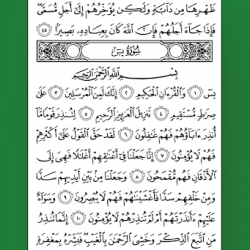 ظَهْرِهَا مِن دَآبَّةٍ وَلَٰكِن يُؤَخِّرُهُمْ إِلَىٰٓ أَجَلٍ مُّسَمًّى
فَإِذَا جَآءَ أَجَلُهُمْ فَإِنَّ ٱللَّهَ كَانَ بِعِبَادِهِۦ بَصِيرًۢا ٤٥
سُورَةُ يسٓ
بِسْمِ ٱللَّهِ ٱلرَّحْمَٰنِ ٱلرَّحِيمِ
يسٓ ١ وَٱلْقُرْءَانِ ٱلْحَكِيمِ ٢ إِنَّكَ لَمِنَ ٱلْمُرْسَلِينَ ٣ عَلَىٰ
صِرَٰطٍ مُّسْتَقِيمٍ ٤ تَنزِيلَ ٱلْعَزِيزِ ٱلرَّحِيمِ ٥ لِتُنذِرَ قَوْمًا مَّآ
أُنذِرَ ءَابَآؤُهُمْ فَهُمْ غَٰفِلُونَ ٦ لَقَدْ حَقَّ ٱلْقَوْلُ عَلَىٰٓ أَكْثَرِهِمْ
فَهُمْ لَا يُؤْمِنُونَ ٧ إِنَّا جَعَلْنَا فِىٓ أَعْنَٰقِهِمْ أَغْلَٰلًا فَهِىَ إِلَى
ٱلْأَذْقَانِ فَهُم مُّقْمَحُونَ ٨ وَجَعَلْنَا مِنۢ بَيْنِ أَيْدِيهِمْ سَدًّا
وَمِنْ خَلْفِهِمْ سَدًّا فَأَغْشَيْنَٰهُمْ فَهُمْ لَا يُبْصِرُونَ ٩ وَسَوَآءٌ
عَلَيْهِمْ ءَأَنذَرْتَهُمْ أَمْ لَمْ تُنذِرْهُمْ لَا يُؤْمِنُونَ ١٠ إِنَّمَا تُنذِرُ
مَنِ ٱتَّبَعَ ٱلذِّكْرَ وَخَشِىَ ٱلرَّحْمَٰنَ بِٱلْغَيْبِ فَبَشِّرْهُ بِمَغْفِرَةٍ